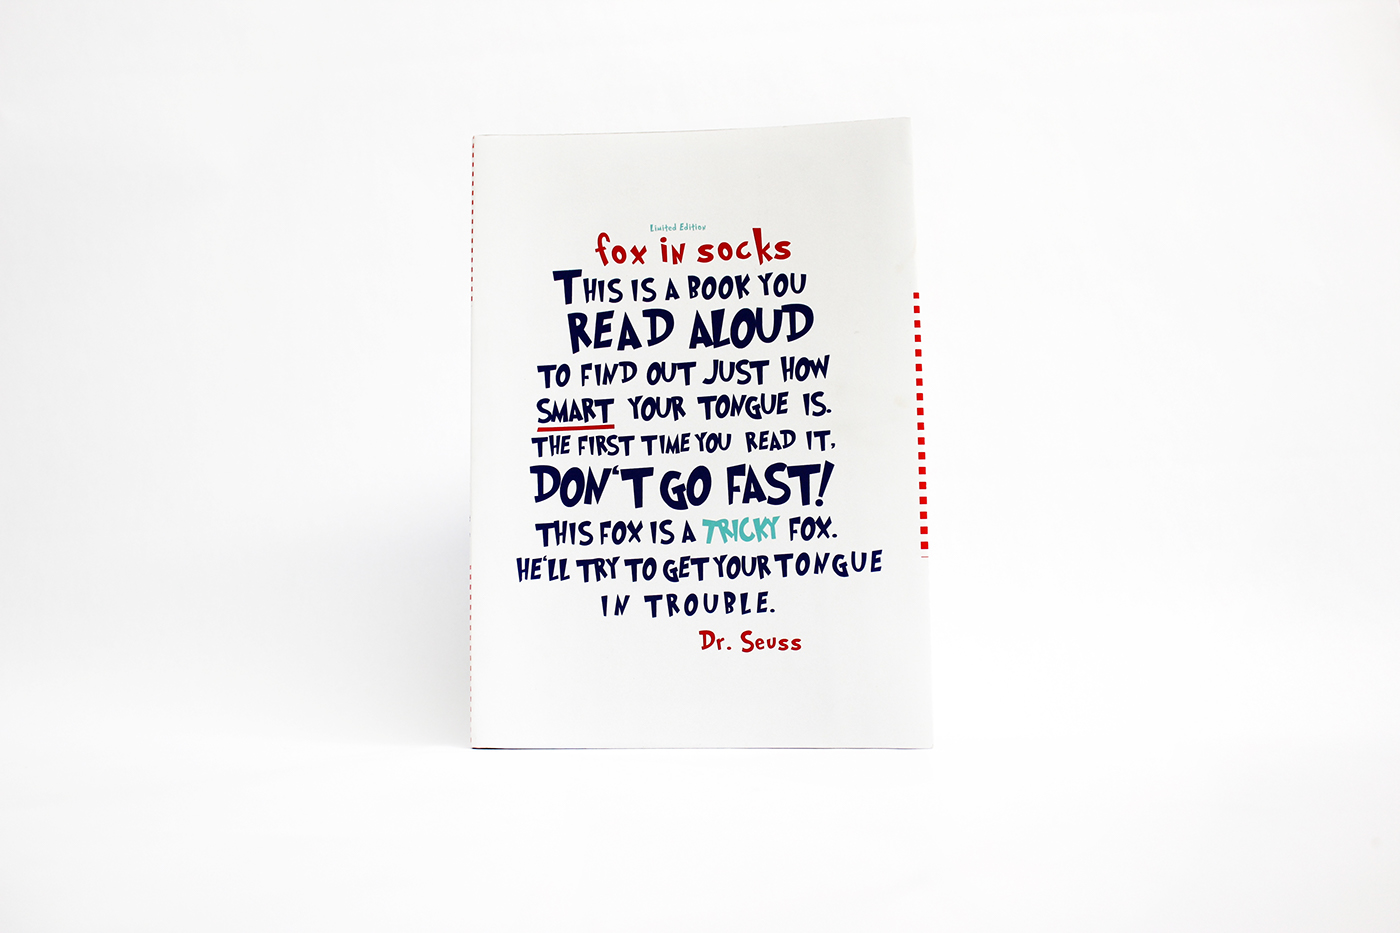 Limited Edition
fox in socks
THIS IS A BOOK YOU
READ ALOUD
TO FIND OUT JUST HOW
SMART YOUR TONGUE IS.
THE FIRST TIME YOU READ IT,
DON'T GO FAST!
THIS FOX IS A TRICKY FOX.
HE'LL TRY TO GET YOUR TONGUE
IN TROUBLE.
Dr. Seuss